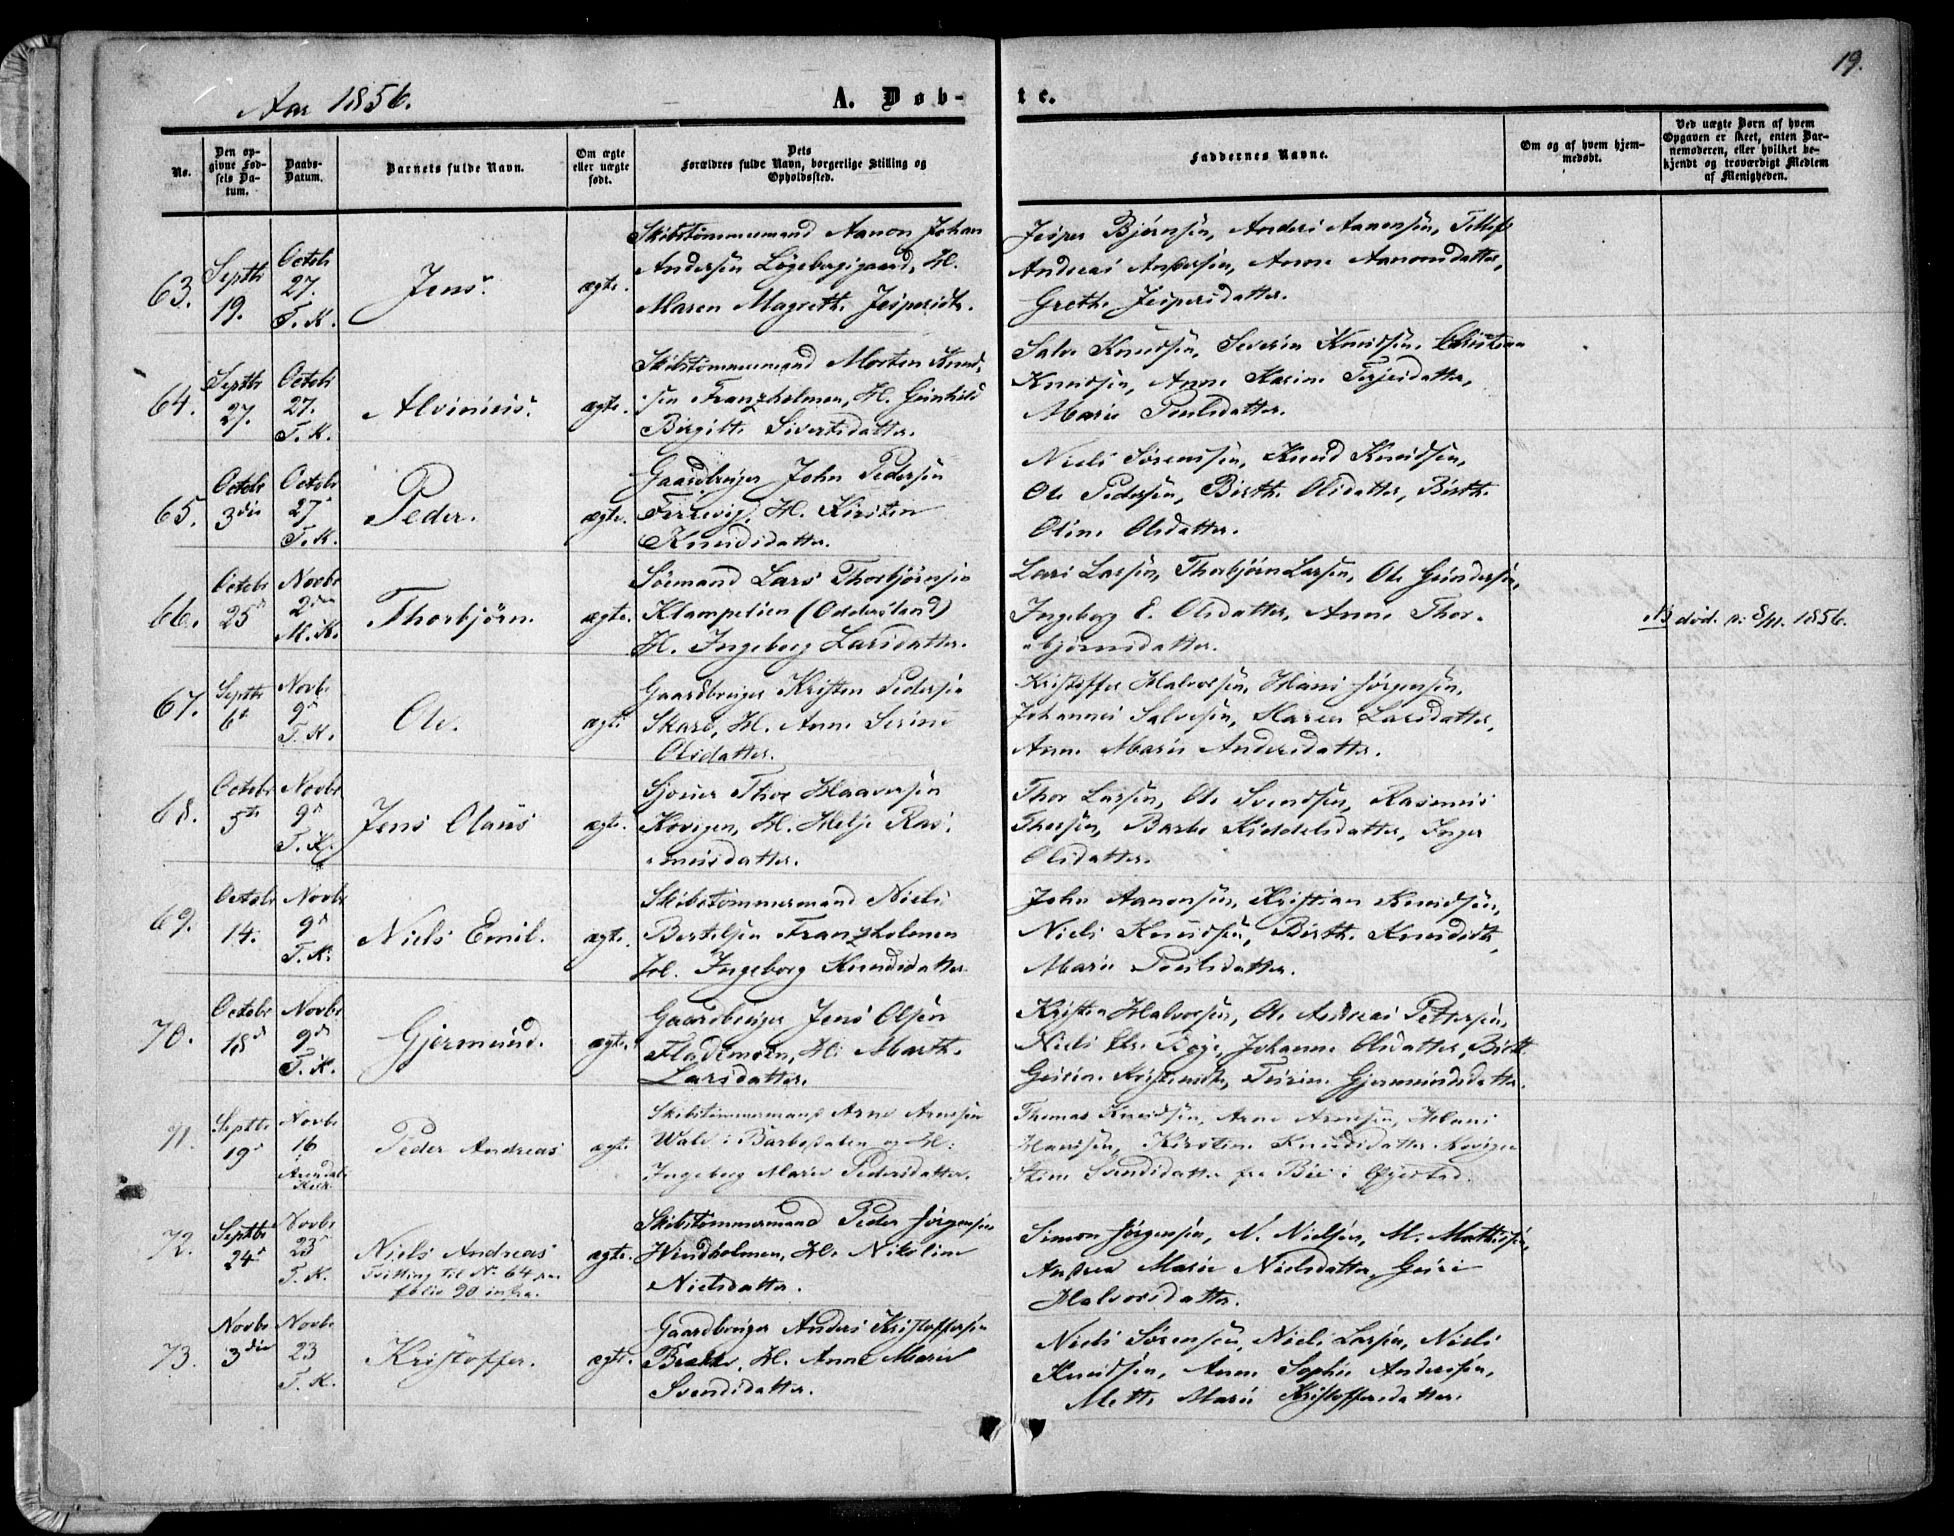 19.
Aar 1856.
A. Døb-
te.
No.
Den op-
givne Fød-
sels Da-
tum.
Daabs-
Datum.
Barnets fulde Navn.
Om ægte
eller uægte
født.
Dets
Forældres fulde Navn, borgerlige Stilling og
Opholdssted.
Faddernes Navne.
Om og af hvem hjem-
medøbt.
Ved uægte Børn af hvem
Opgaven er skeet, enten Bar-
nemoderen, eller hvilket be-
kjendt og troværdigt Medlem
af Menigheden.
63.
Septbr
19.
Octobr
27.
T. K.
Jens.
ægte.
Skibstømmermand Aanon Johan
Andersen Løgebergsgaard, H.
Maren Magrethe Jespersdtr.
Jesper Bjørnsen, Anders Aanonsen, Tellef
Andreas Andersen, Anne Aanonsdatter,
Grethe Jespersdatter.
64.
Septbr
27.
Octobr
27.
T. K.
Alvinius.
ægte.
Skibstømmermand Morten Knud-
sen Franzholmen, H. Gunhild
Birgitte Sivertsdatter.
Salve Knudsen, Severin Knudsen, Christian
Knudsen, Anne Karine Terjesdatter,
Marie Poulsdatter.
65.
Octobr
3die
Octobr
27
T. K.
Peder.
ægte.
Gaardbruger John Pedersen
H. Kirsten
Knudsdatter.
Niels Sørensen, Knud Knudsen,
Ole Pedersen, Birthe Olsdatter, Birthe
Oline Olsdatter.
66.
Octobr
25
Novbr
2den
M. K.
Thorbjørn.
ægte.
Sømand Lars Thorbjørnsen
Klampelien (Oddersland)
H. Ingeborg Larsdatter.
Lars Larsen, Thorbjørn Larsen, Ole Gundersen,
Ingeborg E. Olsdatter, Anne Thor-
bjørnsdatter.
NB død. p: 8/11. 1856.
67.
Septbr
6te
Novbr
9
T. K.
Ole.
ægte
Gaardbruger Kristen Pedersen
Skare, H. Anne Serine
Olsdatter.
Kristoffer Halvorsen, Hans Jørgensen,
Johannes Salvesen, Karen Larsdatter,
Anne Marie Andersdatter.
68.
Octobr
5te
Novbr
9
T. K.
Jens Olaus
ægte.
Thor Haaversen
Kovigen, H. Helje Ras-
musdatter.
Thor Larsen, Ole Svendsen, Rasmus
Thorsen, Barbo Kiddelsdatter, Inger
Olsdatter.
69.
Octobr
14.
Novbr
9
T. K.
Niels Emil.
ægte.
Skibstømmermand Niels
Bertelsen Franzholmen
H. Ingeborg Knudsdatter
John Aanonsen, Kristian Knudsen,
Niels Knudsen, Birthe Knudsdtr,
Marie Poulsdatter.
70.
Octobr
18
Novbr
9
T. K.
Gjermund.
ægte.
Gaardbruger Jens Olsen
Flademoen, H. Marthe
Larsdatter.
Kristen Halvorsen, Ole Andreas Pettersen,
Niels Chr. Johanne Olsdatter, Birthe
Gurine Kristensdtr, Gjermundsdatter.
71.
Septbr
19
Novbr
16
i
Arendals
Kirke.
Peder Andreas
ægte
Skibstømmermand Arne Arnesen
Wald i Barbodalen og H:
Ingeborg Marie Pedersdatter.
Thomas Knudsen, Arne Arnesen, Hans
Hansen, Kirstine Knudsdatter Kovigen
Stine Svendsdatter fra Bie i Øyestad.
72.
Septbr
24
Novbr
23
T. K.
Niels Andreas
Tvilling til No 64 paa
folio 20 infra.
ægte.
Skibstømmermand Peder Jørgensen
Windholmen, H. Nikoline
Nielsdatter.
Simon Jørgensen, N. Nielsen, M. Mathisen,
Andrea Marie Nielsdatter, Guri
Halvorsdatter.
73.
Novbr
3die
Novbr
23
T. K.
Kristoffer.
ægte.
Gaardbruger Anders Kristoffersen
Brække, H. Anne Marie
Svendsdatter.
Niels Sørensen, Niels Larsen, Niels
Knudsen, Anne Sophie Andersen,
Mette Marie Kristoffersdatter.